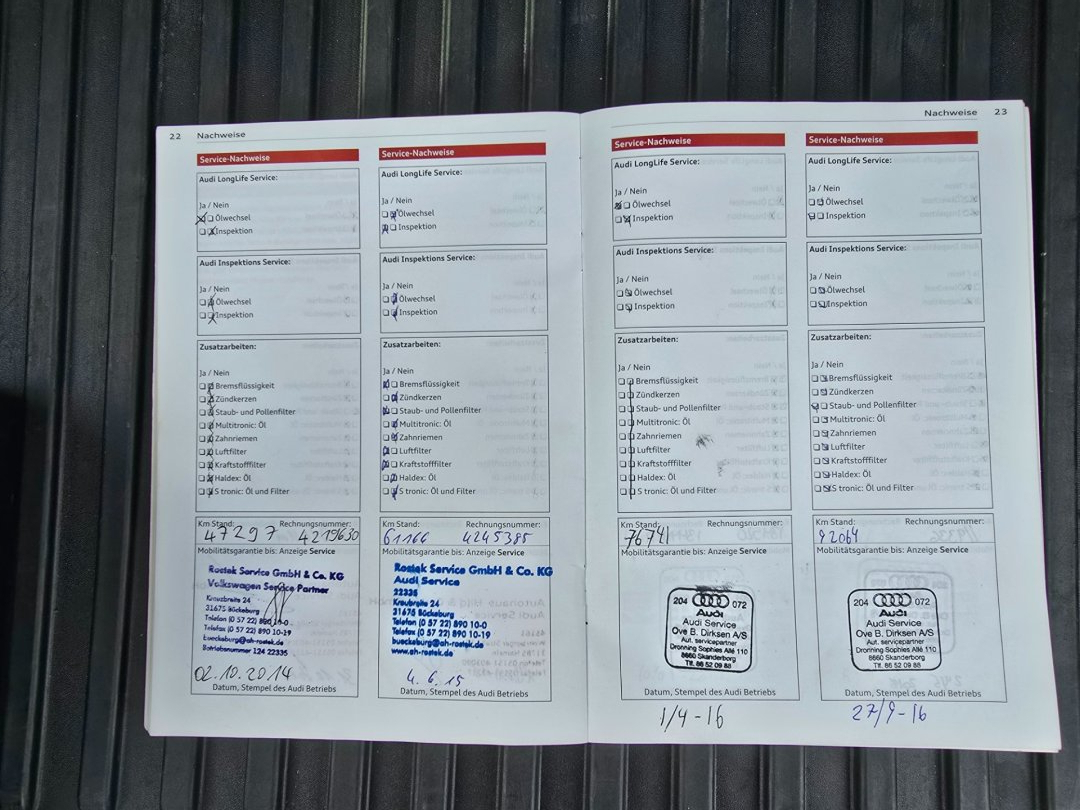 22 Nachweise
Service-Nachweise
Audi LongLife Service:
Ja / Nein
Ölwechsel
Inspektion
Audi Inspektions Service:
Ja / Nein
Ölwechsel
Inspektion
Zusatzarbeiten:
Ja / Nein
Bremsflüssigkeit
Zündkerzen
Staub- und Pollenfilter
Multitronic: Öl
Zahnriemen
Luftfilter
Kraftstofffilter
Haldex: Öl
S tronic: Öl und Filter
Km Stand: Rechnungsnummer:
47297 4219630
Mobilitätsgarantie bis: Anzeige Service
Rostek Service GmbH & Co. KG
Volkswagen Service Partner
Kreuzbreite 24
31675 Bückeburg
Telefon (0 57 22) 890 10-0
Telefax (0 57 22) 890 10-19
bueckeburg@ah-rostek.de
Betriebsnummer 124 22335
02.10.2014
Datum, Stempel des Audi Betriebs
Service-Nachweise
Audi LongLife Service:
Ja / Nein
Ölwechsel
Inspektion
Audi Inspektions Service:
Ja / Nein
Ölwechsel
Inspektion
Zusatzarbeiten:
Ja / Nein
Bremsflüssigkeit
Zündkerzen
Staub- und Pollenfilter
Multitronic: Öl
Zahnriemen
Luftfilter
Kraftstofffilter
Haldex: Öl
S tronic: Öl und Filter
Km Stand: Rechnungsnummer:
61166 4245385
Mobilitätsgarantie bis: Anzeige Service
Rostek Service GmbH & Co. KG
Audi Service
22335
Kreuzbreite 24
31675 Bückeburg
Telefon (0 57 22) 890 10-0
Telefax (0 57 22) 890 10-19
bueckeburg@ah-rostek.de
www.ah-rostek.de
4.6.15
Datum, Stempel des Audi Betriebs
Nachweise 23
Service-Nachweise
Audi LongLife Service:
Ja / Nein
Ölwechsel
Inspektion
Audi Inspektions Service:
Ja / Nein
Ölwechsel
Inspektion
Zusatzarbeiten:
Ja / Nein
Bremsflüssigkeit
Zündkerzen
Staub- und Pollenfilter
Multitronic: Öl
Zahnriemen
Luftfilter
Kraftstofffilter
Haldex: Öl
S tronic: Öl und Filter
Km Stand: Rechnungsnummer:
76741
Mobilitätsgarantie bis: Anzeige Service
204 072
Audi
Audi Service
Ove B. Dirksen A/S
Aut. servicepartner
Dronning Sophies Allé 110
8660 Skanderborg
Tlf. 86 52 09 88
Datum, Stempel des Audi Betriebs
1/4-16
Service-Nachweise
Audi LongLife Service:
Ja / Nein
Ölwechsel
Inspektion
Audi Inspektions Service:
Ja / Nein
Ölwechsel
Inspektion
Zusatzarbeiten:
Ja / Nein
Bremsflüssigkeit
Zündkerzen
Staub- und Pollenfilter
Multitronic: Öl
Zahnriemen
Luftfilter
Kraftstofffilter
Haldex: Öl
S tronic: Öl und Filter
Km Stand: Rechnungsnummer:
92064
Mobilitätsgarantie bis: Anzeige Service
204 072
Audi
Audi Service
Ove B. Dirksen A/S
Aut. servicepartner
Dronning Sophies Allé 110
8660 Skanderborg
Tlf. 86 52 09 88
Datum, Stempel des Audi Betriebs
27/9-16